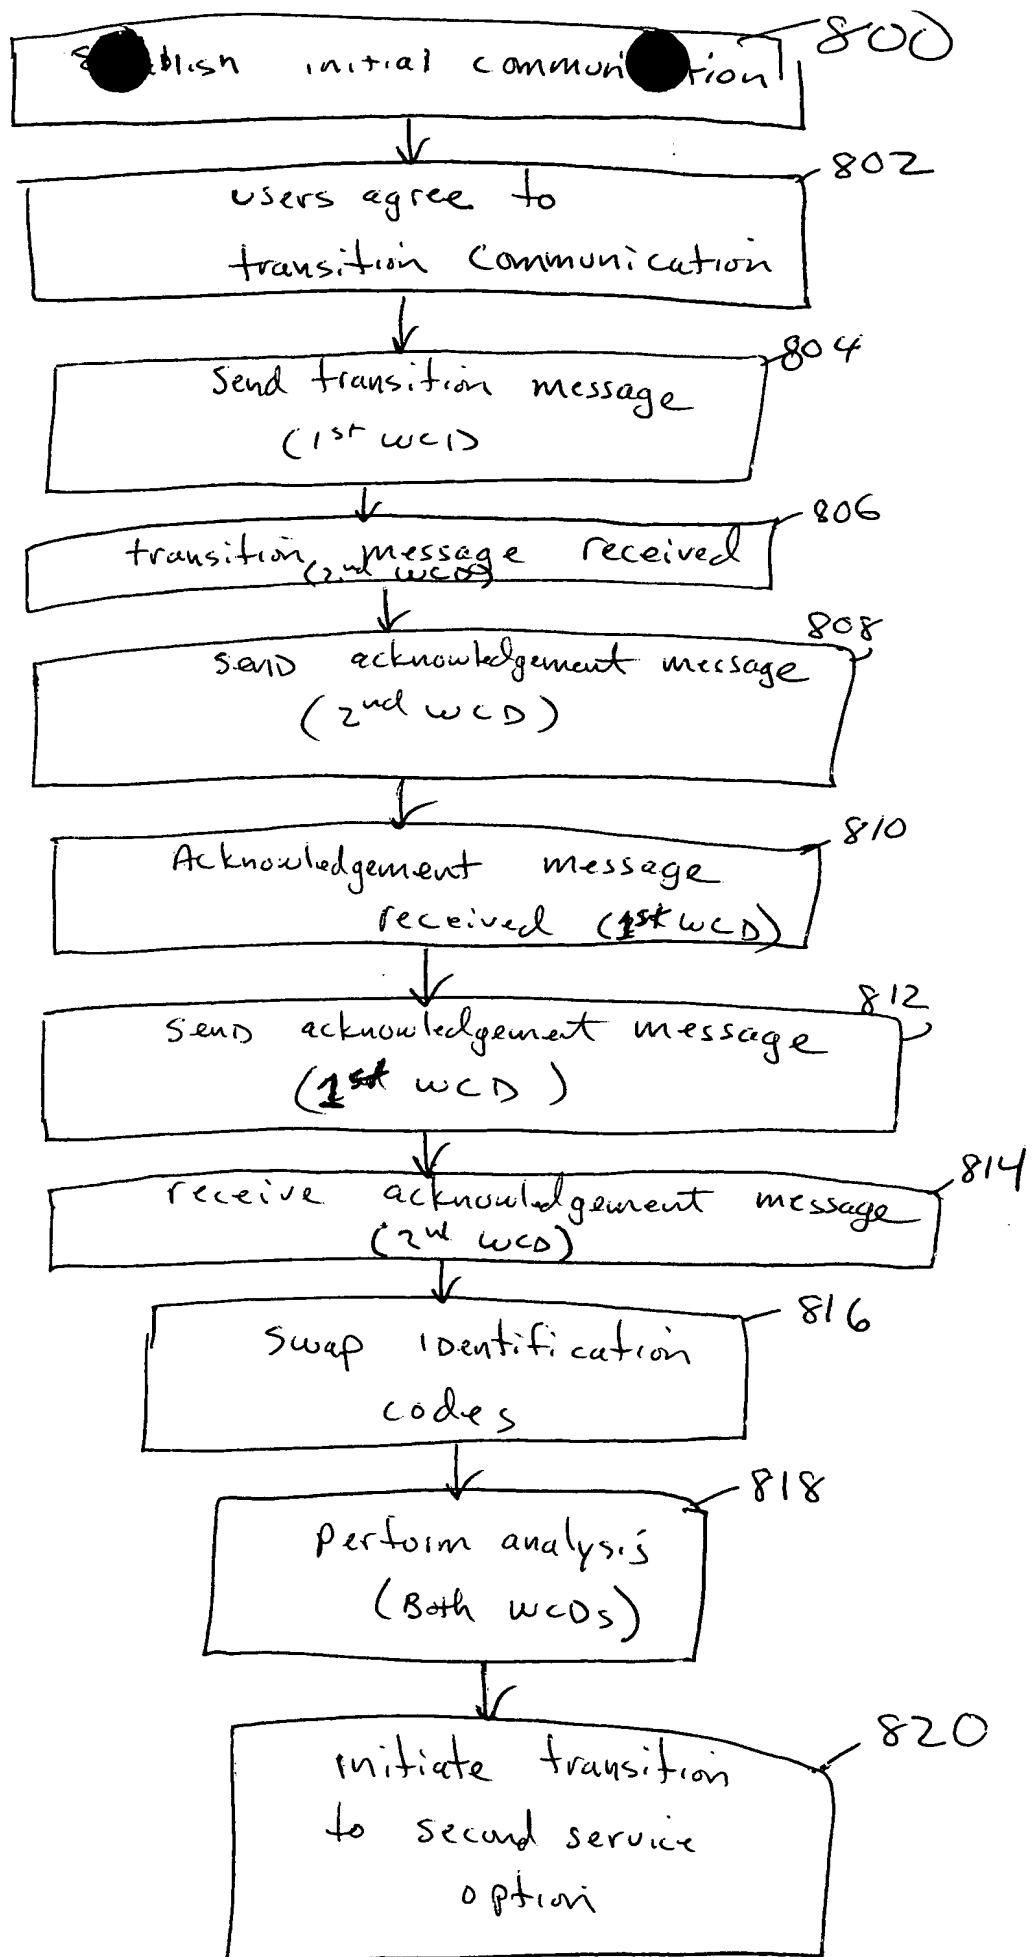 800
initial
802
users agree to
transition communication
804
Send transition message
(1st WCD
806
transition message received
(2nd WCD)
808
send acknowledgement message
(2nd WCD)
810
Acknowledgement message
received (1st WCD)
812
send acknowledgement message
(1st WCD)
814
receive acknowledgement message
(2nd WCD)
816
swap identification
codes
818
perform analysis
(Both WCDs)
820
initiate transition
to second service
option